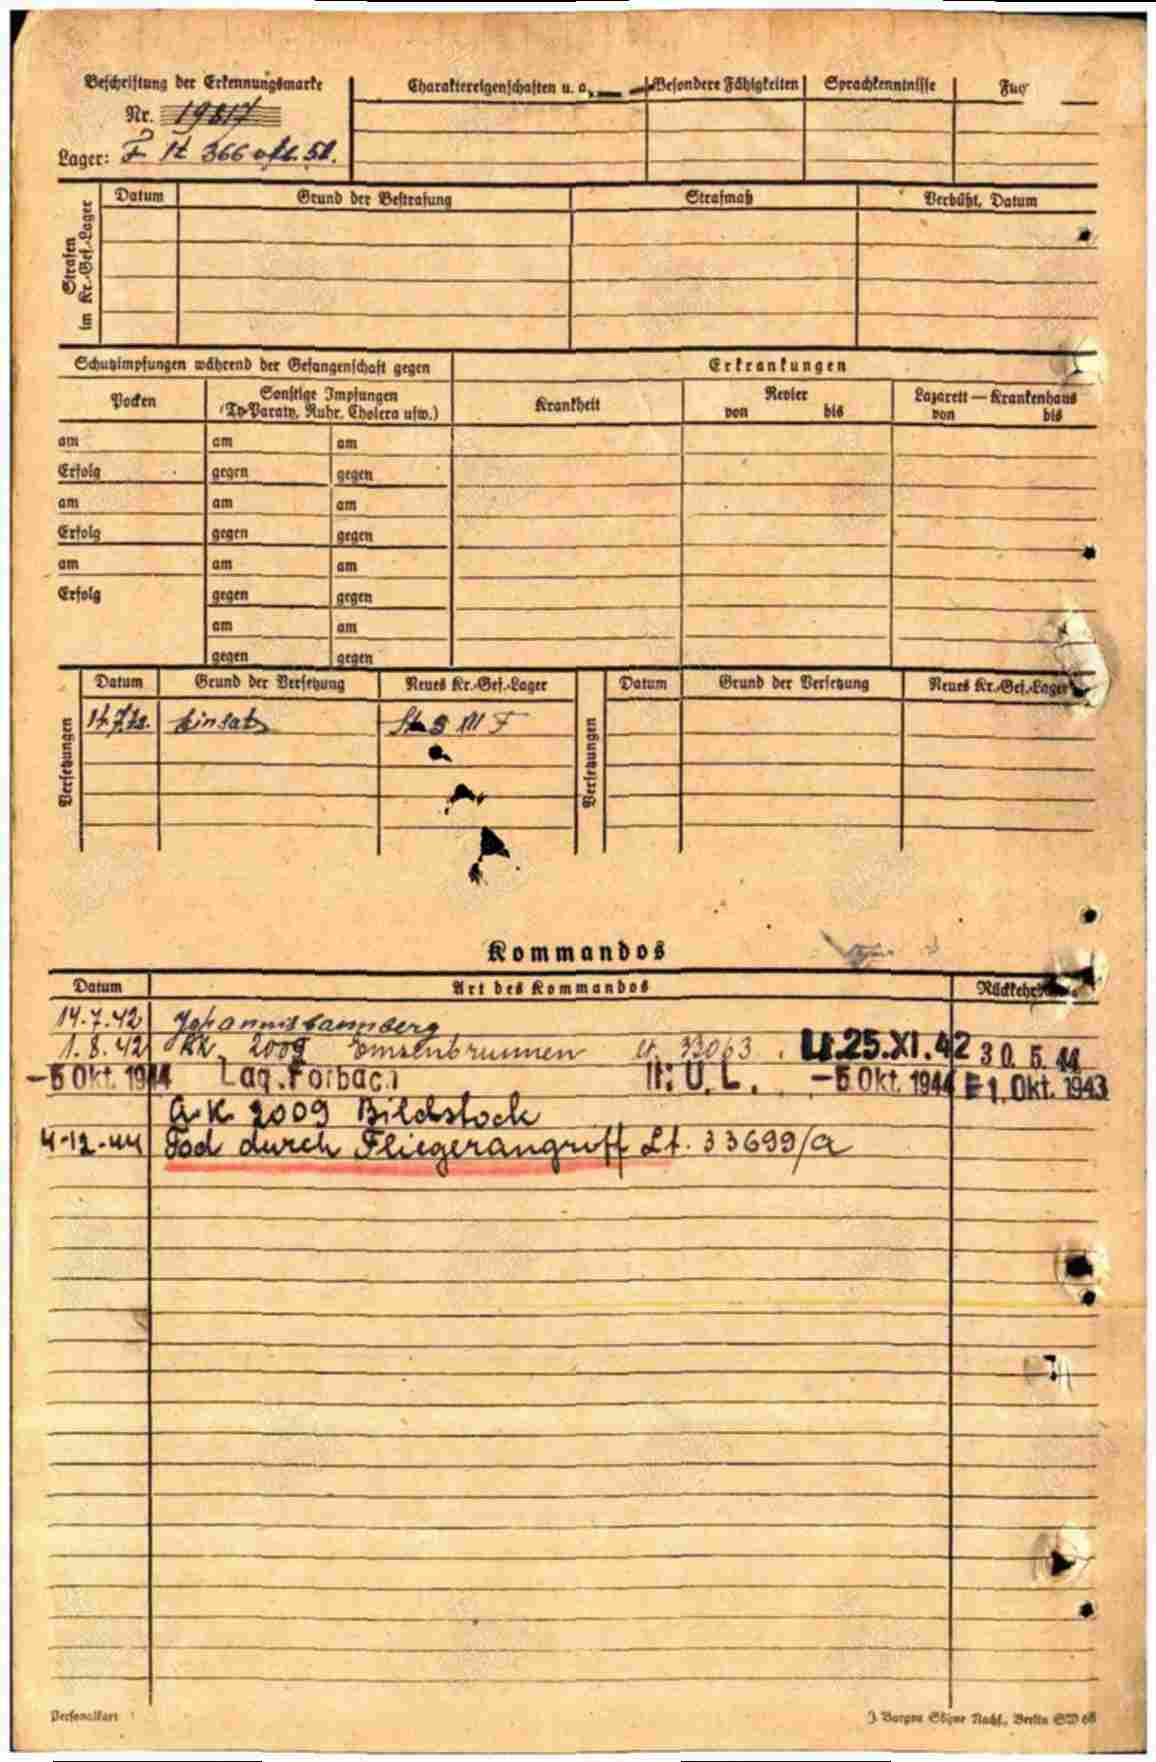 Beschriftung der Erkennungsmarke
Nr. 19817
Lager:
366
Charaktereigenschaften u. a.
Besondere Fähigkeiten
Sprachkenntnisse
Strafen im Kr.-Gef.-Lager
Datum
Grund der Bestrafung
Strafmaß
Verbüßt, Datum
Schutzimpfungen während der Gefangenschaft gegen
Erkrankungen
Pocken
Sonstige Impfungen
(Ty-Paraty, Ruhr, Cholera usw.)
Krankheit
Revier
von bis
Lazarett — Krankenhaus
von bis
am am am
Erfolg gegen gegen
am am am
Erfolg gegen gegen
am am am
Erfolg gegen gegen
am am
gegen gegen
Versetzungen
Datum
Grund der Versetzung
Neues Kr.-Gef.-Lager
Einsatz
XII F
Versetzungen
Datum
Grund der Versetzung
Neues Kr.-Gef.-Lager
Kommandos
Datum
Art des Kommandos
14.7.42 Johannisbannberg
1.8.42 2009 Emsenbrunnen 33063 Lt. 25. XI. 42 30. 5. 44
-5 Okt. 1944 Lag. Forbach lt: U. L. -5 Okt. 1944 1. Okt. 1943
A.K. 2009 Bildstock
4-12-44 Tod durch Fliegerangriff Lt. 33699/a
Personalkart
Berlin SW 68